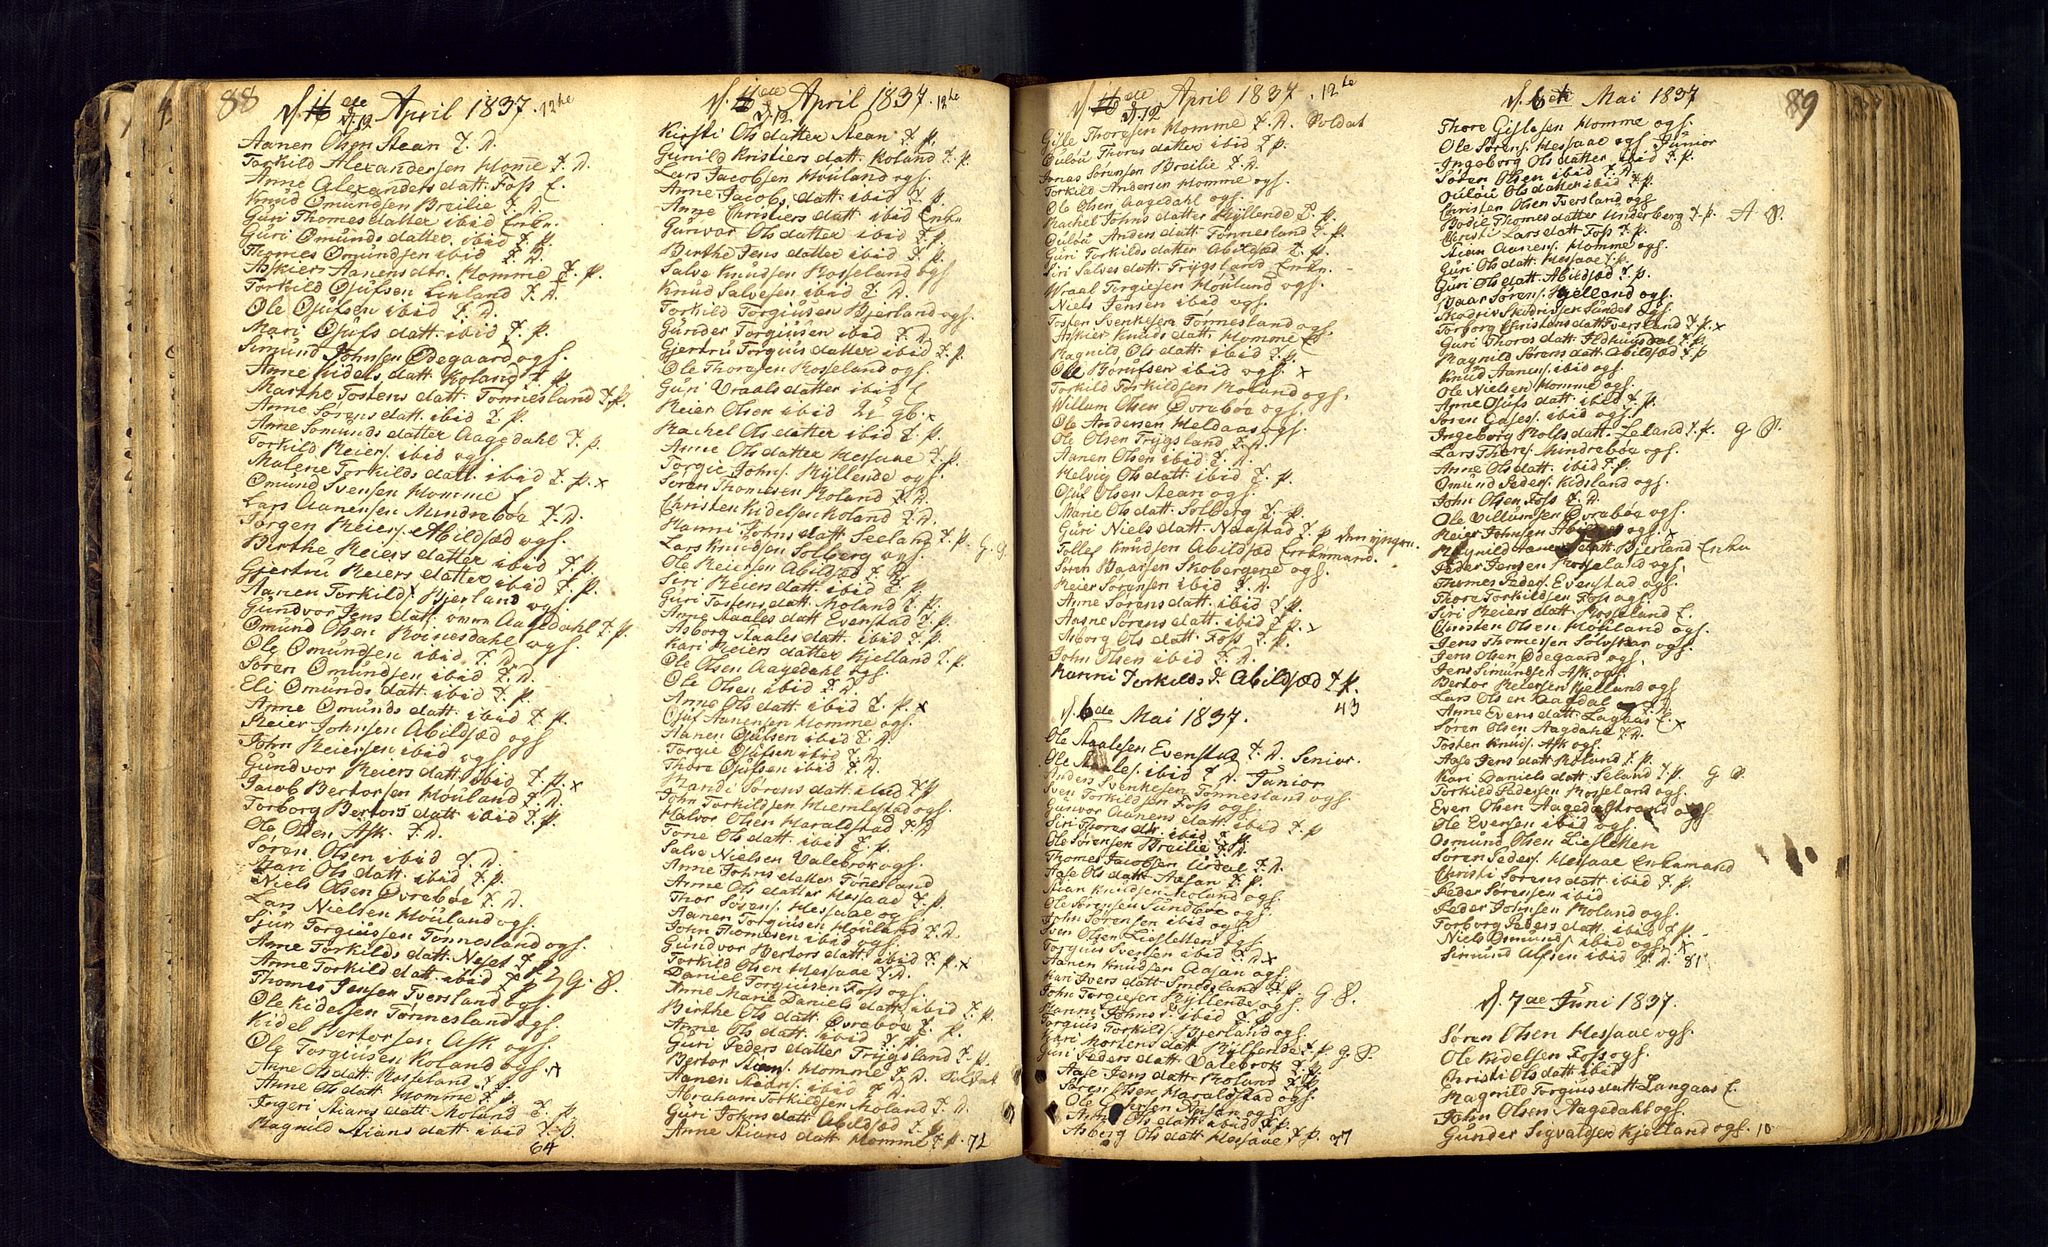 88
April 1837. 12te
Aanen Olsen Stean T. D.
Torkild Alexandersen Homme T. D.
Anne Alexanders datt. Foss E.
Knud Omundsen Breilie T. D.
Guri Thomes datter ibid Enke.
Guri Omunds datter ibid T. P.
Thomes Omundsen ibid T. D.
Askier Aanens dtr. Homme T. P.
Torkild Ojufsen Linland T. D.
Ole Ojufsen ibid T. D.
Mari Ojufs datt. ibid T. P.
Simund Johnsen Ødegaard ogs.
Anne Kidels datt. Roland T. P.
Marthe Tostens datt. Tønnesland T. P.
Anne Sørens datt. ibid T. P.
Anne Somunds datter Aagedahl T. P.
Torkild Reiers. ibid ogs.
Malene Torkilds datt. ibid T. P. x
Omund Svensen Homme E
Lars Aanensen Mundrebøe T. D.
Jørgen Reiers. Abildsæd ogs.
Birthe Reiers datter ibid T. P.
Gjertru Reiers datter ibid T. P.
Aanen Torkilds. Bjerland ogs.
Gundvor Jens datt. Aagedahl T. P.
Omund Olsen Roinesdahl ogs.
Ole Omundsen ibid T. D.
Søren Omundsen ibid T. D.
Eli Omunds datt. ibid T. P.
Anne Omunds datt. ibid T. P.
Reier Johnsen Abildsæd ogs
John Reiersen ibid ogs.
Gundvor Reiers datt. ibid T. P. x
Jacob Bertorsen Houland T. D.
Torborg Bertors datt ibid T. P.
Ole Olsen Ask T. D.
Søren Olsen ibid T. D.
Mari Ols datt. ibid T. P.
Niels Olsen Øvrebøe T. D.
Lars Nielsen Houland ogs.
Sjur Torgiussen Tønnesland ogs.
Anne Torkilds datt. Neset T. P.
Anne Torkild datt. ibid T. P. G. S.
Thomes Jensen Tversland ogs.
Ole Kidelsen Tønnesland ogs.
Kidel Bertorsen Ask ogs.
Ole Torguisen Roland ogs.
Anne Ols datt. Rosseland T. P. x
Anne Ols datt. Homme T. P.
Ingeri Stians datt. Moland T. P.
Magnild Stians datt. ibid T. P.
64
April 1837. 12te
Kirsti Ols datter Stean T. P.
Gunild Kristiers datt. Roland T. P.
Lars Jacobsen Houland ogs.
Anne Jacobs datt. ibid T. P.
Anne Christiers datt. ibid Enke
Gunvor Ols datter ibid T. P.
Birthe Jens datter ibid T. P.
Salve Knudsen Rosseland ogs
Knud Salvesen ibid T. D.
Torkild Torgiussen Bjerland ogs.
Gunder Torgiusen ibid T. D.
Gjertru Torguis datter ibid T. P.
Ole Thoresen Rosseland ogs.
Guri Vraals datter ibid E
Reier Olsen ibid
Rachel Ols datter ibid T. P.
Anne Ols datter Messaae T. P.
Torgie Johns. Myllende ogs.
Søren Thomesen Moland T. D.
Christen Kidelsen Roland T. D.
Hanni Johns datt. Seeland T. P. G. S.
Lars Knudsen Solberg ogs.
Ole Reiersen Abildsæd T. D.
Siri Reiers datt. ibid T. P.
Guri Tostens datt. Moland T. P.
Anne Staales datt. Evenstad T. P.
Asborg Staales datt. ibid T. P.
Kari Reiers datter Kjelland T. P.
Ole Olsen Aagedahl ogs.
Ole Olsen ibid T. D.
Anne Ols datt. ibid T. P. x
Ojuf Aanensen Homme ogs.
Aanen Ojufsen ibid T. D.
Torgie Ojufsen ibid T. D.
Thore Ojufsen ibid T. D.
Randi Sørens datt. ibid T. P
John Torkildsen Hiemlestad ogs.
Halvor Olsen Haraldstad T. D.
Tone Ols datt. ibid T. P.
Salve Nielsen Valebrok ogs.
Anne Johns datter Tønnesland
Anne Ols datter Messaae T. P.
Thor Sørens. Messaae ogs.
Aanen Torguisen Houland T. D.
John Thomesen ibid ogs.
Gundvor Bertors datt. ibid T. P. x
Torkild Olsen Messaae T. D.
Daniel Torguisen Foss ogs.
Anne Marie Daniels datt. ibid T. P.
Birthe Ols datt. Øvrebøe T. P.
Anne Ols datt. ibid T. P.
Guri Peders datter Trygsland T. P.
Bertor Stians. Homme T. D. Soldat
Aanen Stians. ibid T. D.
Abraham Torkildsen Moland T. D.
Guri Johns datt. Abildsæd T. P.
Anne Stians datt. Homme T. P. 72
April 1837. 12te
Gisle Thoresen Homme T. D. Soldat
Oulou Thores datter ibid T. P.
Jonas Sørensen Breilie T. D.
Torkild Andersen Homme ogs.
Ole Olsen Aagedahl ogs.
Rachel Johns datter Myllende T. P.
Oulou Anders datt. Tønnesland T. P.
Guri Torkilds datter Abildsæd T. P.
Siri Salves datt. Trygsland Enke.
Wraal Torgiesen Houland ogs.
Niels Jensen ibid ogs.
Tosten Svenkesen Tønnesland ogs.
Askier Knuds datt. Homme E
Magnild Ols datt. ibid T. P.
Ole Børufsen ibid ogs. x
Torkild Torkildsen Roland ogs.
Willum Olsen Øvrebøe ogs.
Ole Andersen Heldaas ogs.
Ole Olsen Trygsland T. D.
Aanen Olsen ibid T. D.
Helvig Ols datt. ibid T. P.
Ojuf Olsen Stean ogs.
Marie Ols datt. Solberg T. P.
Guri Niels datt. Naastad T. P. den yngre.
Tollef Knudsen Abildsæd Enkemand.
Søren Baarsen Skobergene ogs.
Reier Sørensen ibid T. D.
Anne Sørens datt. ibid T. P.
Aasne Sørens datt. ibid T. P. x
Asborg Ols datt. Foss T. P.
John Olsen ibid T. D.
Hanni Torkilds d. Abildsæd T. P.
43
d. 6de Mai 1837.
Ole Staalesen Evenstad T. D. Senior.
Ole Staales. ibid T. D. Junior
Anders Svenkesen Tønnesland ogs.
Sven Torkildsen Foss ogs.
Gunvor Aanens datt. ibid T. P.
Siri Thores dtr. ibid T. P.
Ole Sørensen Breilie T. D.
Thomes Jacobsen Urdal T. D.
Aase Ols datt. Aasan T. P.
Stian Knudsen Moland ogs.
Ole Sørensen Sundbøe ogs.
John Sørensen ibid ogs
Sven Olsen Liesletten ogs
Torguis Svensen ibid T. D. x
Aanen Knudsen Aasan ogs.
Kari Ivers datt. Smedsland T. P. G. S.
John Torgiesen Myllende ogs.
Hanni Johns d. ibid T. P.
Torguis Torkilds. Bjerland ogs.
Kari Mortens datt. Myllende T. P. G. S.
Guri Peders datt. Valebrok T. P.
Aase Jens datt. Roland T. P.
Søren Olsen Haraldstad ogs.
Ole Olsen Aasan ogs
Anne Ols datt. ibid T. P.
Asberg Ols datt. Messaae T. P. 37
89
d. 6te Mai 1837
Thore Gislesen Homme ogs.
Ole Sørens. Messaae ogs. Junior
Ingeborg Ols datter ibid T. P.
Søren Olsen ibid T. D.
Oulou Ols datter ibid T. P.
Christen Olsen Tversland ogs
Bodil Thomes datter Underberg T. P. A S.
Christi Lars datt. Foss T. P.
Stian Aanens. Homme ogs.
Guri Ols datt. Messaae T. P.
Guri Ols datt. Abildsæd T. P.
Baar Sørens. Kjelland ogs.
Skadriv Skadrivsen Sundet Ogs.
Torborg Christens datt. Tversland T. P. x
Guri Thores datt. Ildhuusdal T. P.
Magnild Sørens datt. Abildsæd T. P
Knud Aanens. ibid ogs.
Ole Nielsen Homme ogs.
Anne Olufs datt. ibid T. P.
Søren Edses. ibid ogs.
Ingeborg Rolfs datt. Leland T. P. G S.
Lars Thores. Mundrebøe ogs.
Anne Ols datt. ibid T. P.
Omund Peders. Kidsland ogs.
John Olsen Foss T. D.
Ole Villumsen Øvrebøe ogs.
Reier Johnsen Abildsæd ogs. x
Magnild Aanens datt. Bjerland Enke
Peder Jensen Rosseland ogs.
Thomes Peders. Evenstad ogs.
Thore Torkildsen Foss ogs.
Siri Reiers datt. Rosseland E.
Christen Olsen Houland ogs.
Jens Thomessen Solvskar ogs.
Jens Olsen Ødegaard ogs.
Jens Simundsen Ask ogs.
Bertor Reiersen Kjelland ogs
Lars Olsen Aagdal T. D.
Anne Evens datt. Lagaas E. x
Søren Olsen Aagdahl T. D.
Tosten Knuds. Ask ogs.
Aase Jens datt. Roland T. P.
Kari Daniels datt. Seland T. P. G S.
Torkild Pedersen Rosseland ogs.
Even Olsen Aagedalstrand ogs
Ole Evensen ibid ogs.
Osmund Olsen Liesletten
Søren Peders. Messaae Enkemand
Christi Sørens datt. ibid T. P.
Peder Sørensen ibid
Peder Johnsen Roland ogs.
Torborg Peders datt. ibid T. P.
Niels Osmunds. ibid ogs. x
Simund Alfsen ibid T. D. 81
d. 7de Juni 1837.
Søren Olsen Messaae ogs.
Ole Kidelsen Foss ogs.
Christi Ols datt. ibid
Magnild Torguis datt. Langaas E
John Olsen Aagedahl ogs.
Gunder Sigvaldsen Kjelland ogs. 10